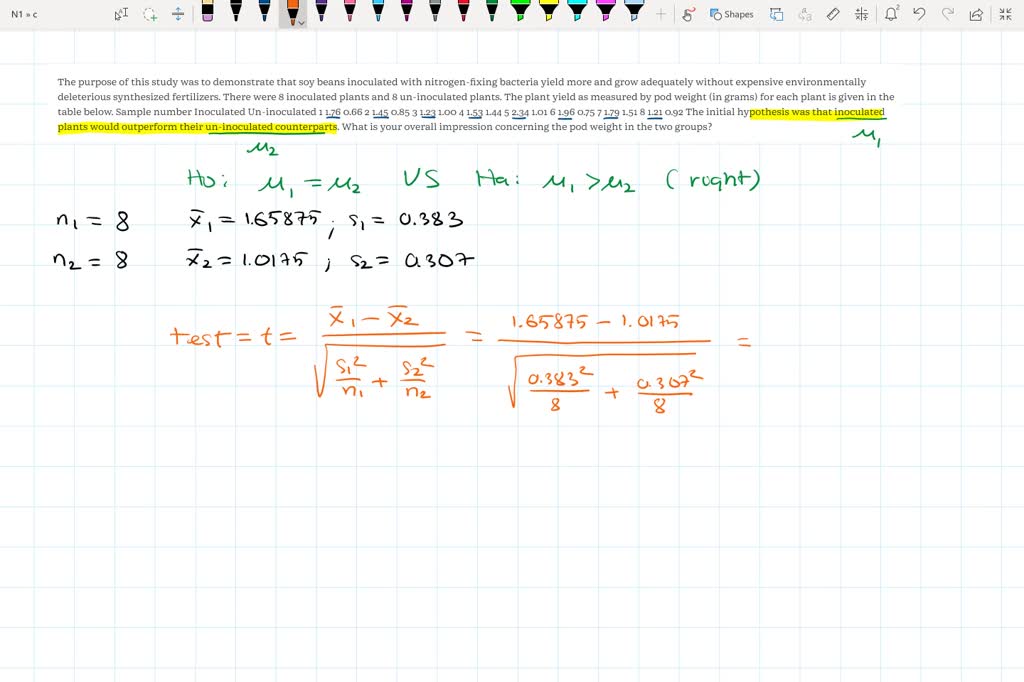 N1 » c
Shapes
The purpose of this study was to demonstrate that soy beans inoculated with nitrogen-fixing bacteria yield more and grow adequately without expensive environmentally
deleterious synthesized fertilizers. There were 8 inoculated plants and 8 un-inoculated plants. The plant yield as measured by pod weight (in grams) for each plant is given in the
table below. Sample number Inoculated Un-inoculated 1 1.76 0.66 2 1.45 0.85 3 1.23 1.00 4 1.53 1.44 5 2.34 1.01 6 1.96 0.75 7 1.79 1.51 8 1.21 0.92 The initial hypothesis was that inoculated
plants would outperform their un-inoculated counterparts. What is your overall impression concerning the pod weight in the two groups?
μ₁
μ₂
Ho: μ₁ = μ₂ VS Ha: μ₁ > μ₂ (right)
n₁ = 8 x̄₁ = 1.65875 ; s₁ = 0.383
n₂ = 8 x̄₂ = 1.0175 ; s₂ = 0.307
test = t = (x̄₁ − x̄₂) / √(s₁²/n₁ + s₂²/n₂) = (1.65875 − 1.0175) / √(0.383²/8 + 0.307²/8) =